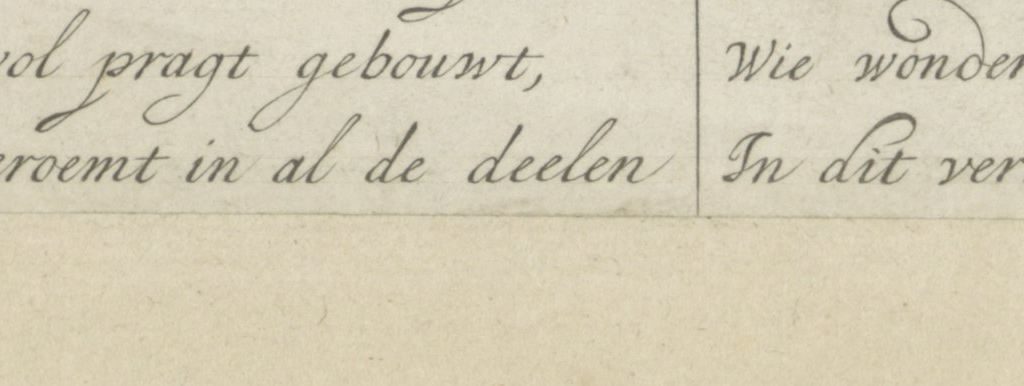 vol pragt gebouwt,
eroemt in al de deelen
Wie wonder
In dit ver